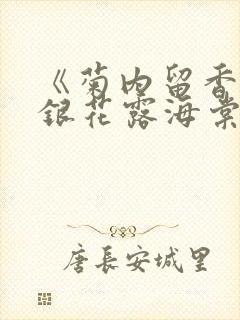 《菊内留香
銀花露海棠
唐長安城里